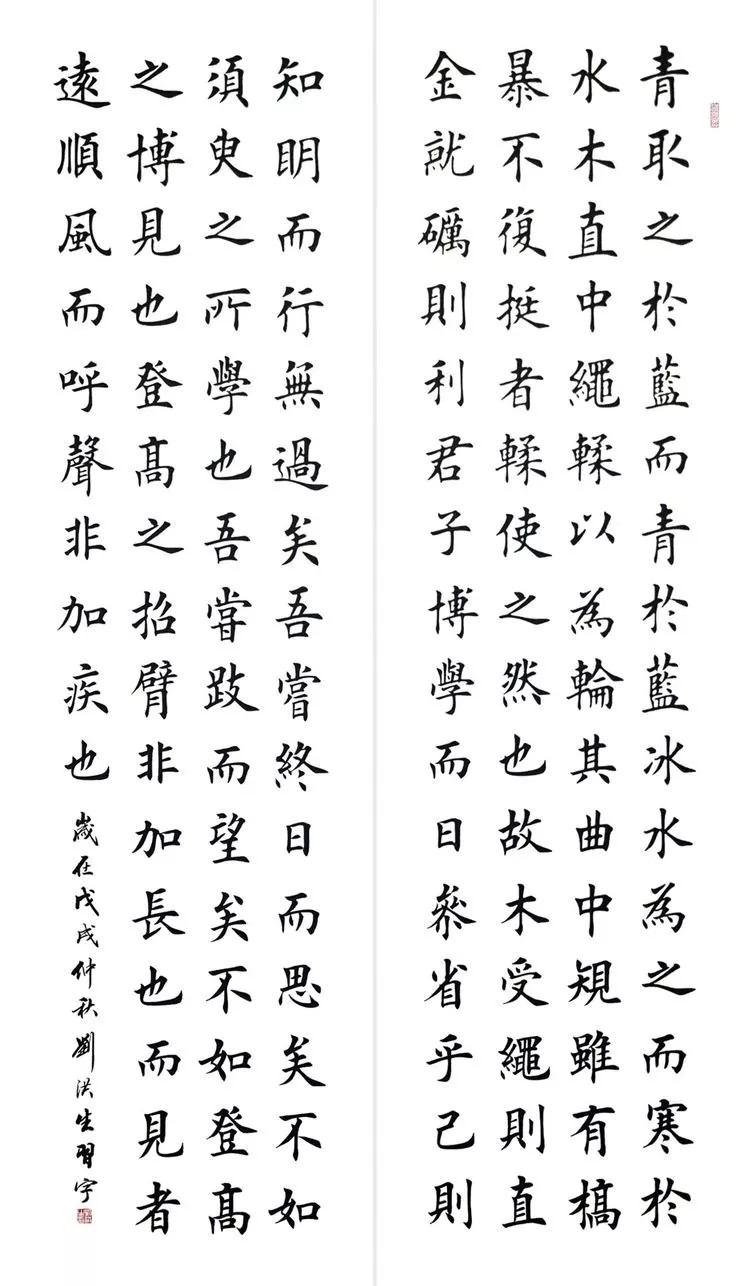 青取之於藍而青於藍冰水為之而寒於
水木直中繩輮以為輪其曲中規雖有槁
暴不復挺者輮使之然也故木受繩則直
金就礪則利君子博學而日參省乎己則
知明而行無過矣吾嘗終日而思矣不如
須臾之所學也吾嘗跂而望矣不如登高
之博見也登高之招臂非加長也而見者
遠順風而呼聲非加疾也
歲在戊戌仲秋劉洪生習字